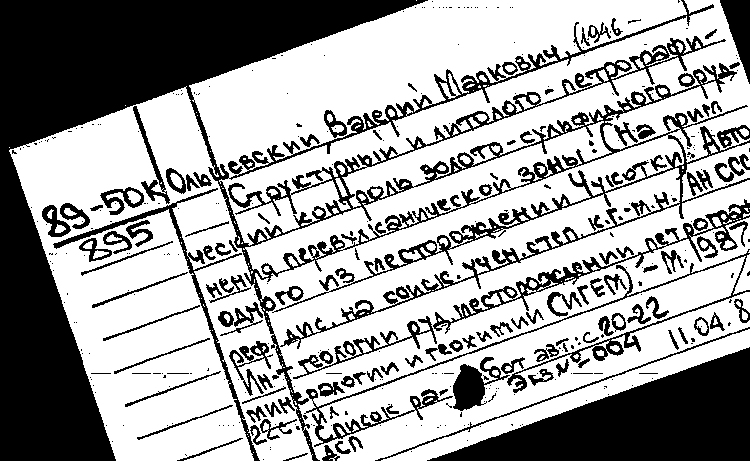 89-50К
895
Ольшевский, Валерий Маркович, (1946 - )
Структурный и литолого-петрографи-
ческий контроль золото-сульфидного оруд-
нения перевулканической зоны: (На прим
одного из месторождений Чукотки): Авто
реф. дис. на соиск. учен. степ. к.г.-м.н. / АН ССС
Ин-т геологии руд. месторождений, петрограф
минералогии и геохимии (ИГЕМ). - М., 1987.
22с.: ил.
Список работ авт.: с. 20-22
ДСП Экз. № 004 11.04.8